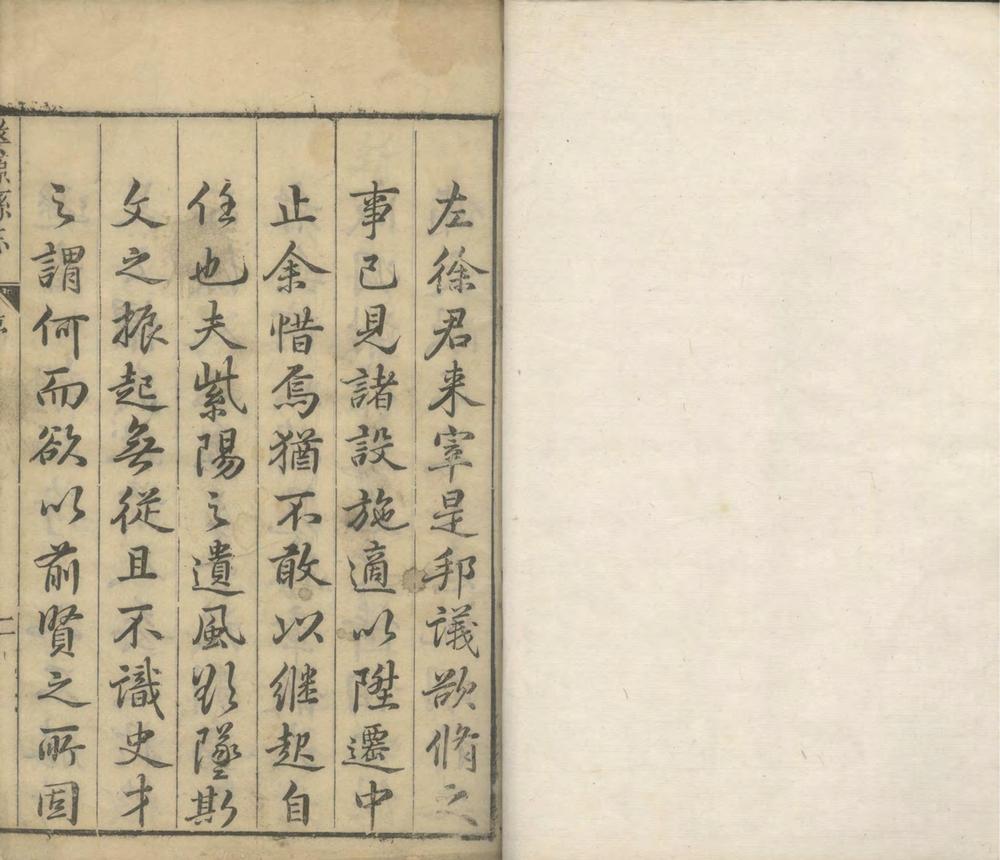 左徐君来宰是邦議欲脩之
事已見諸設施適以陞遷中
止余惜焉猶不敢以継起自
任也夫紫陽之遺風欲墜斯
文之振起無従且不識史才
之謂何而欲以前賢之所固